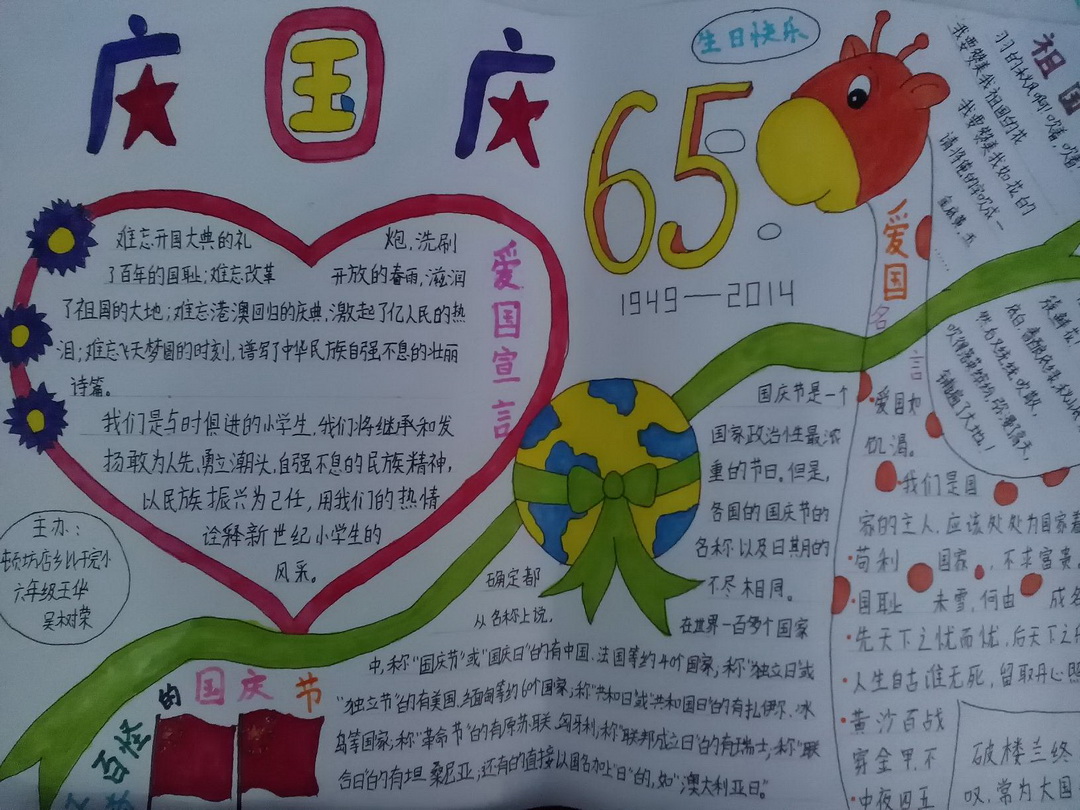 庆国庆
生日快乐
65
1949—2014
爱国宣言
难忘开国大典的礼炮,洗刷
了百年的国耻;难忘改革开放的春雨,滋润
了祖国的大地;难忘港澳回归的庆典,激起了亿人民的热
泪;难忘飞天梦圆的时刻,谱写了中华民族自强不息的壮丽
诗篇。
我们是与时俱进的小学生,我们将继承和发
扬敢为人先,勇立潮头,自强不息的民族精神,
以民族振兴为己任,用我们的热情
诠释新世纪小学生的
风采。
主办:
六年级王华
吴树荣
百怪的国庆节
国庆节是一个
国家政治性最浓
重的节日。但是,
各国的国庆节的
名称以及日期的
确定都不尽相同。
从名称上说,在世界一百多个国家
中,称“国庆节”或“国庆日”的有中国、法国等约40个国家,称“独立日”或
“独立节”的有美国、缅甸等约60个国家;称“共和日”或“共和国日”的有扎伊尔、冰
岛等国家,称“革命节”的有原苏联、匈牙利,称“联邦成立日”的有瑞士,称“联
合日”的有坦桑尼亚;还有的直接以国名加上“日”的,如“澳大利亚日”。
爱国名言
爱国如
饥渴。
我们是国
家的主人,应该处处为国家着
苟利国家,不求富贵。
国耻未雪,何由成名
先天下之忧而忧,后天下之
人生自古谁无死,留取丹心照
黄沙百战
穿金甲,不
破楼兰终
中夜四五
叹,常为大国
祖国
我要赞美我祖国的花
我要赞美我如花的